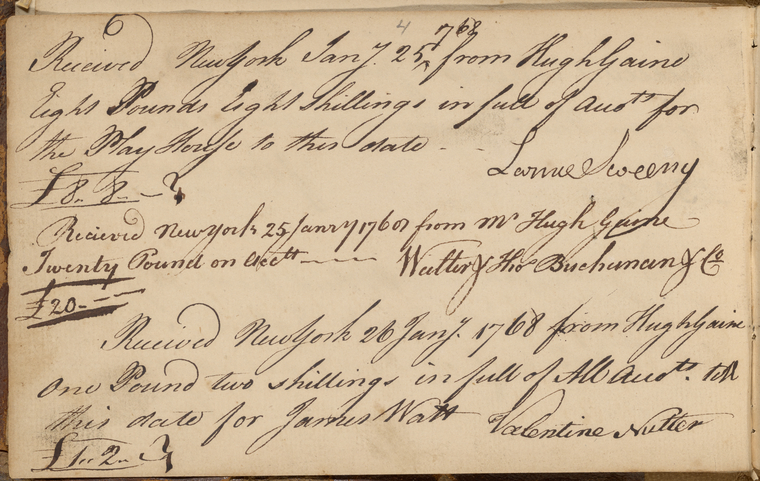 4
1768
Received New York Jany. 25, from Hugh Gaine
Eight Pounds Eight Shillings in full of Accots for
the Play House to this date - -
Sweeny
£8.. 8..-
Recieved New York 25 Janry 1768 from Mr Hugh Gaine
Twenty Pound on Acctt ----
Walter & Thos Buchanan & Co
£20.---
Received New York 26 Jany. 1768 from Hugh Gaine
One Pound two shillings in full of All Accots. till
this date for James Watt
Valentine Nutter
£1.. 2..-